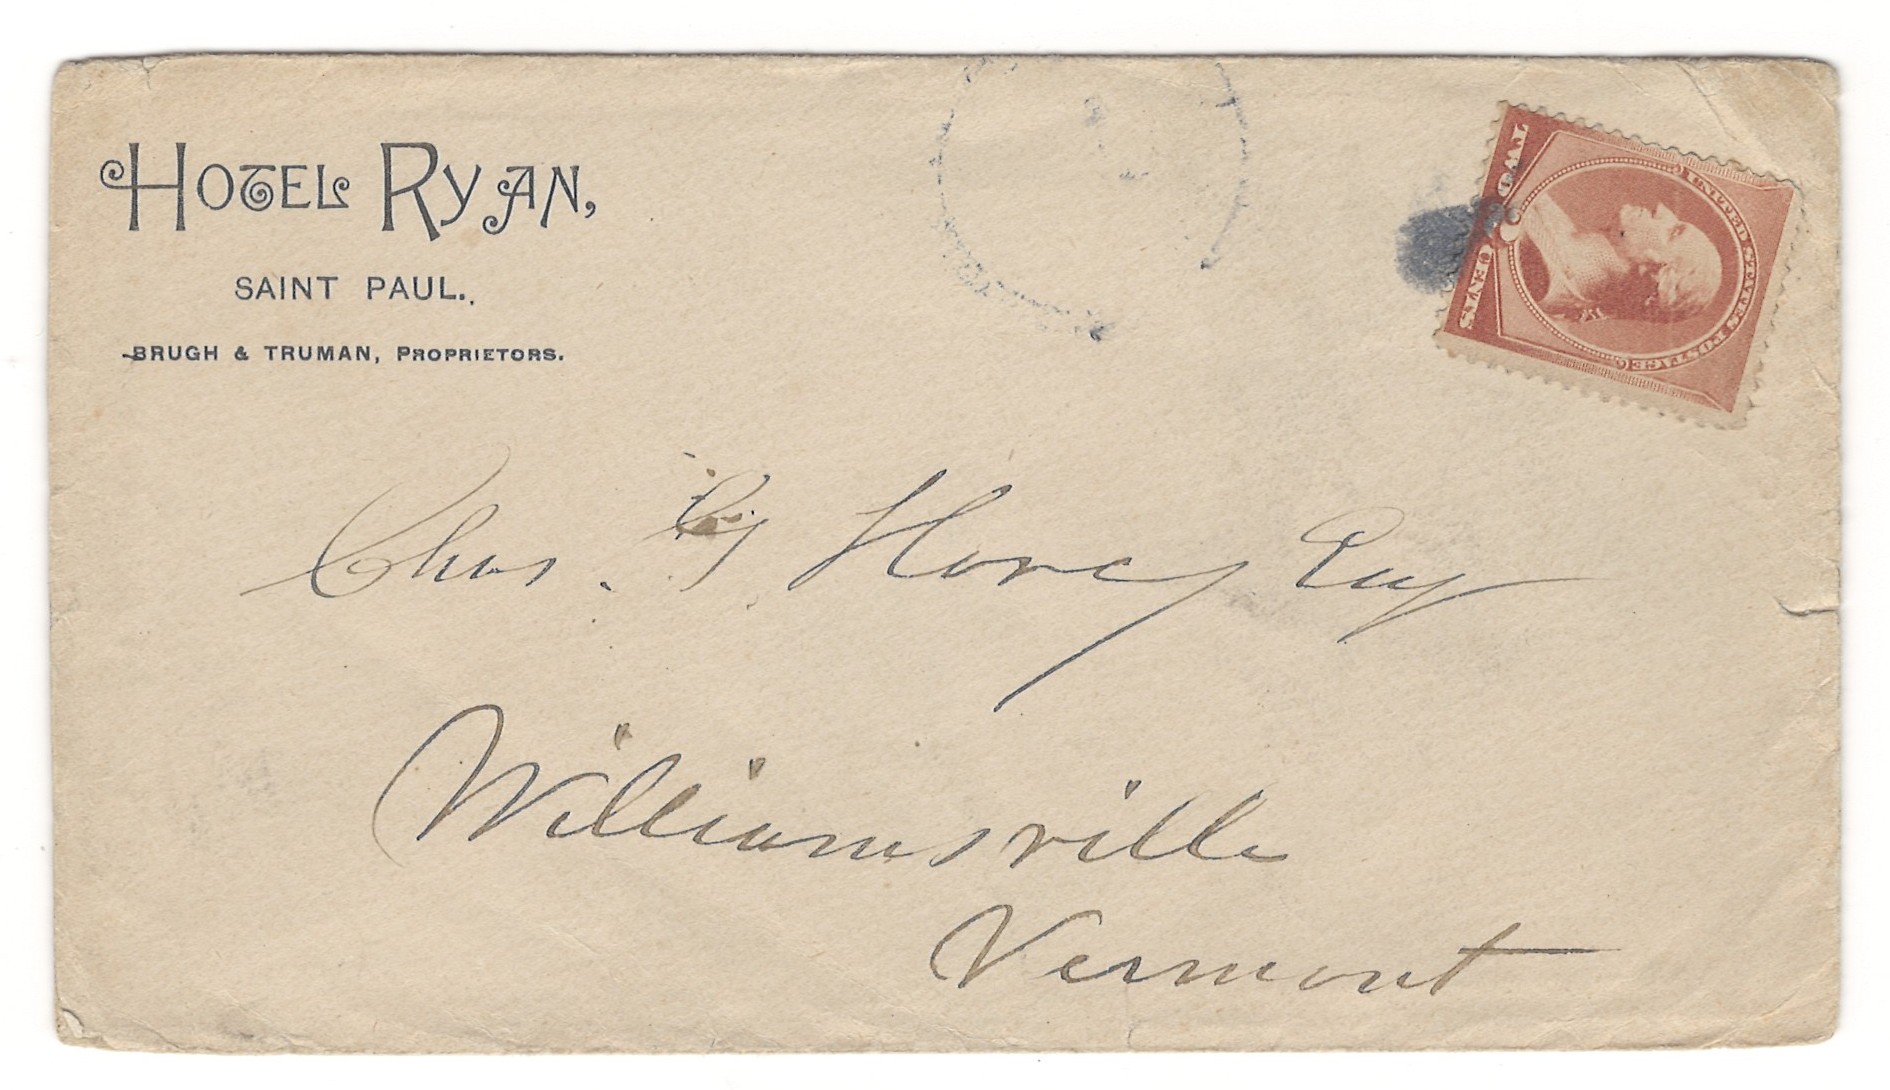 HOTEL RYAN,
SAINT PAUL.
BRUGH & TRUMAN, PROPRIETORS.
UNITED STATES POSTAGE
TWO CENTS
Chas. G Horcy Esq
Williamsville
Vermont